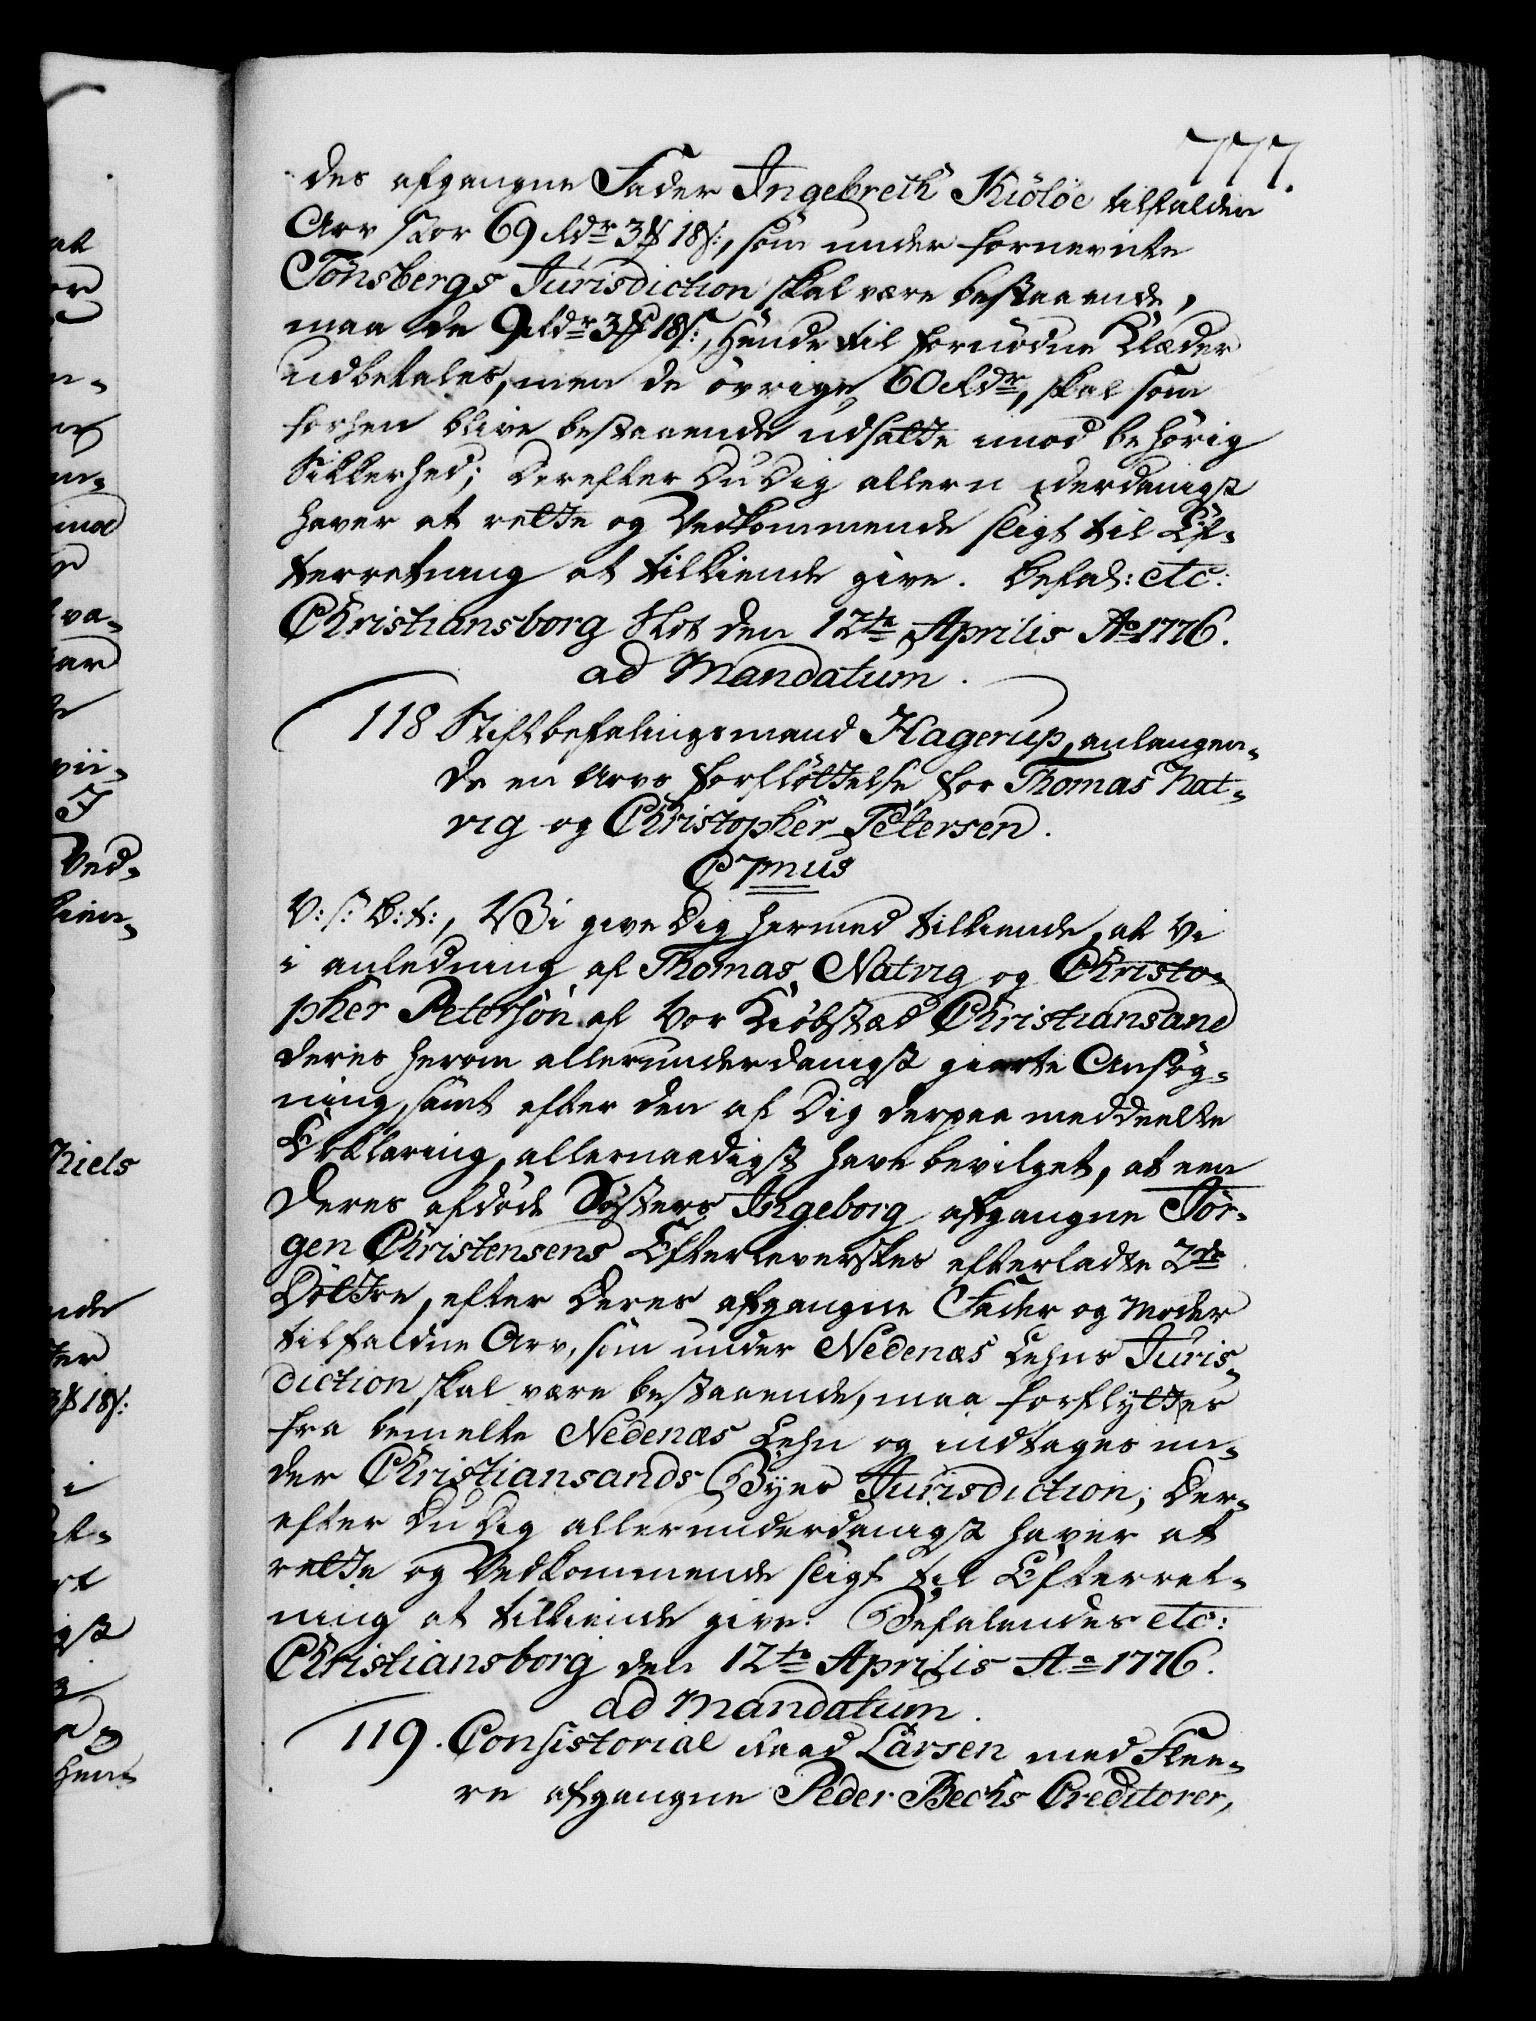 777.
des afgangne Fader Ingebreth Kiölöe tilfalden
Arv stor 69 Rdr 3 ₰ 18 s:, som under fornevnte
Tönsbergs Jurisdiction skal være bestaaende,
maa de 9 Rdr 3 ₰ 18 s:, hende til fornödne Klæder
udbetales, men de övrige 60 Rdr, skal som
forhen blive bestaaende udsatte imod behörig
Sikkerhed; Derefter Du Dig allerunderdanigst
haver at rette og Vedkommende sligt til Ef-
terretning at tilkiende give. Befal: etc:
Christiansborg Slot den 12te Aprilis Ao 1776.
ad Mandatum.
118 Stiftbefalingsmand Hagerup, anlangen-
de en Arvs forflöttelse for Thomas Nat-
vig og Christopher Petersen.
C 7mus
V: s: B: t:, Wi give Dig hermed tilkiende, at Vi
i anledning af Thomas Natvig og Christo-
pher Petersön af Vor Kiöbstæd Christiansand
deres herom allerunderdanigst giorte Ansög-
ning, samt efter den af Dig derpaa meddeelte
Erklæring, allernaadigst have bevilget, at een
Deres afdöde Systers Ingeborg afgangne Jör-
gen Christensens Efterleverskes efterladte 2de
Döttre, efter Deres afgangne Fader og Moder
tilfaldne Arv, som under Nedenæs Lehns Juris-
diction skal være bestaaende, maa forflyttes
fra bemelte Nedenæs Lehn og indtages un-
der Christiansands Byes Jurisdiction; Der-
efter Du Dig allerunderdanigst haver at
rette og Vedkommende sligt til Efterret-
ning at tilkiende give. Befalendes etc:
Christiansborg den 12te Aprilis Ao 1776.
ad Mandatum.
119. Consistorial Raad Larsen med Flee-
re afgangne Peder Bechs Creditorer,